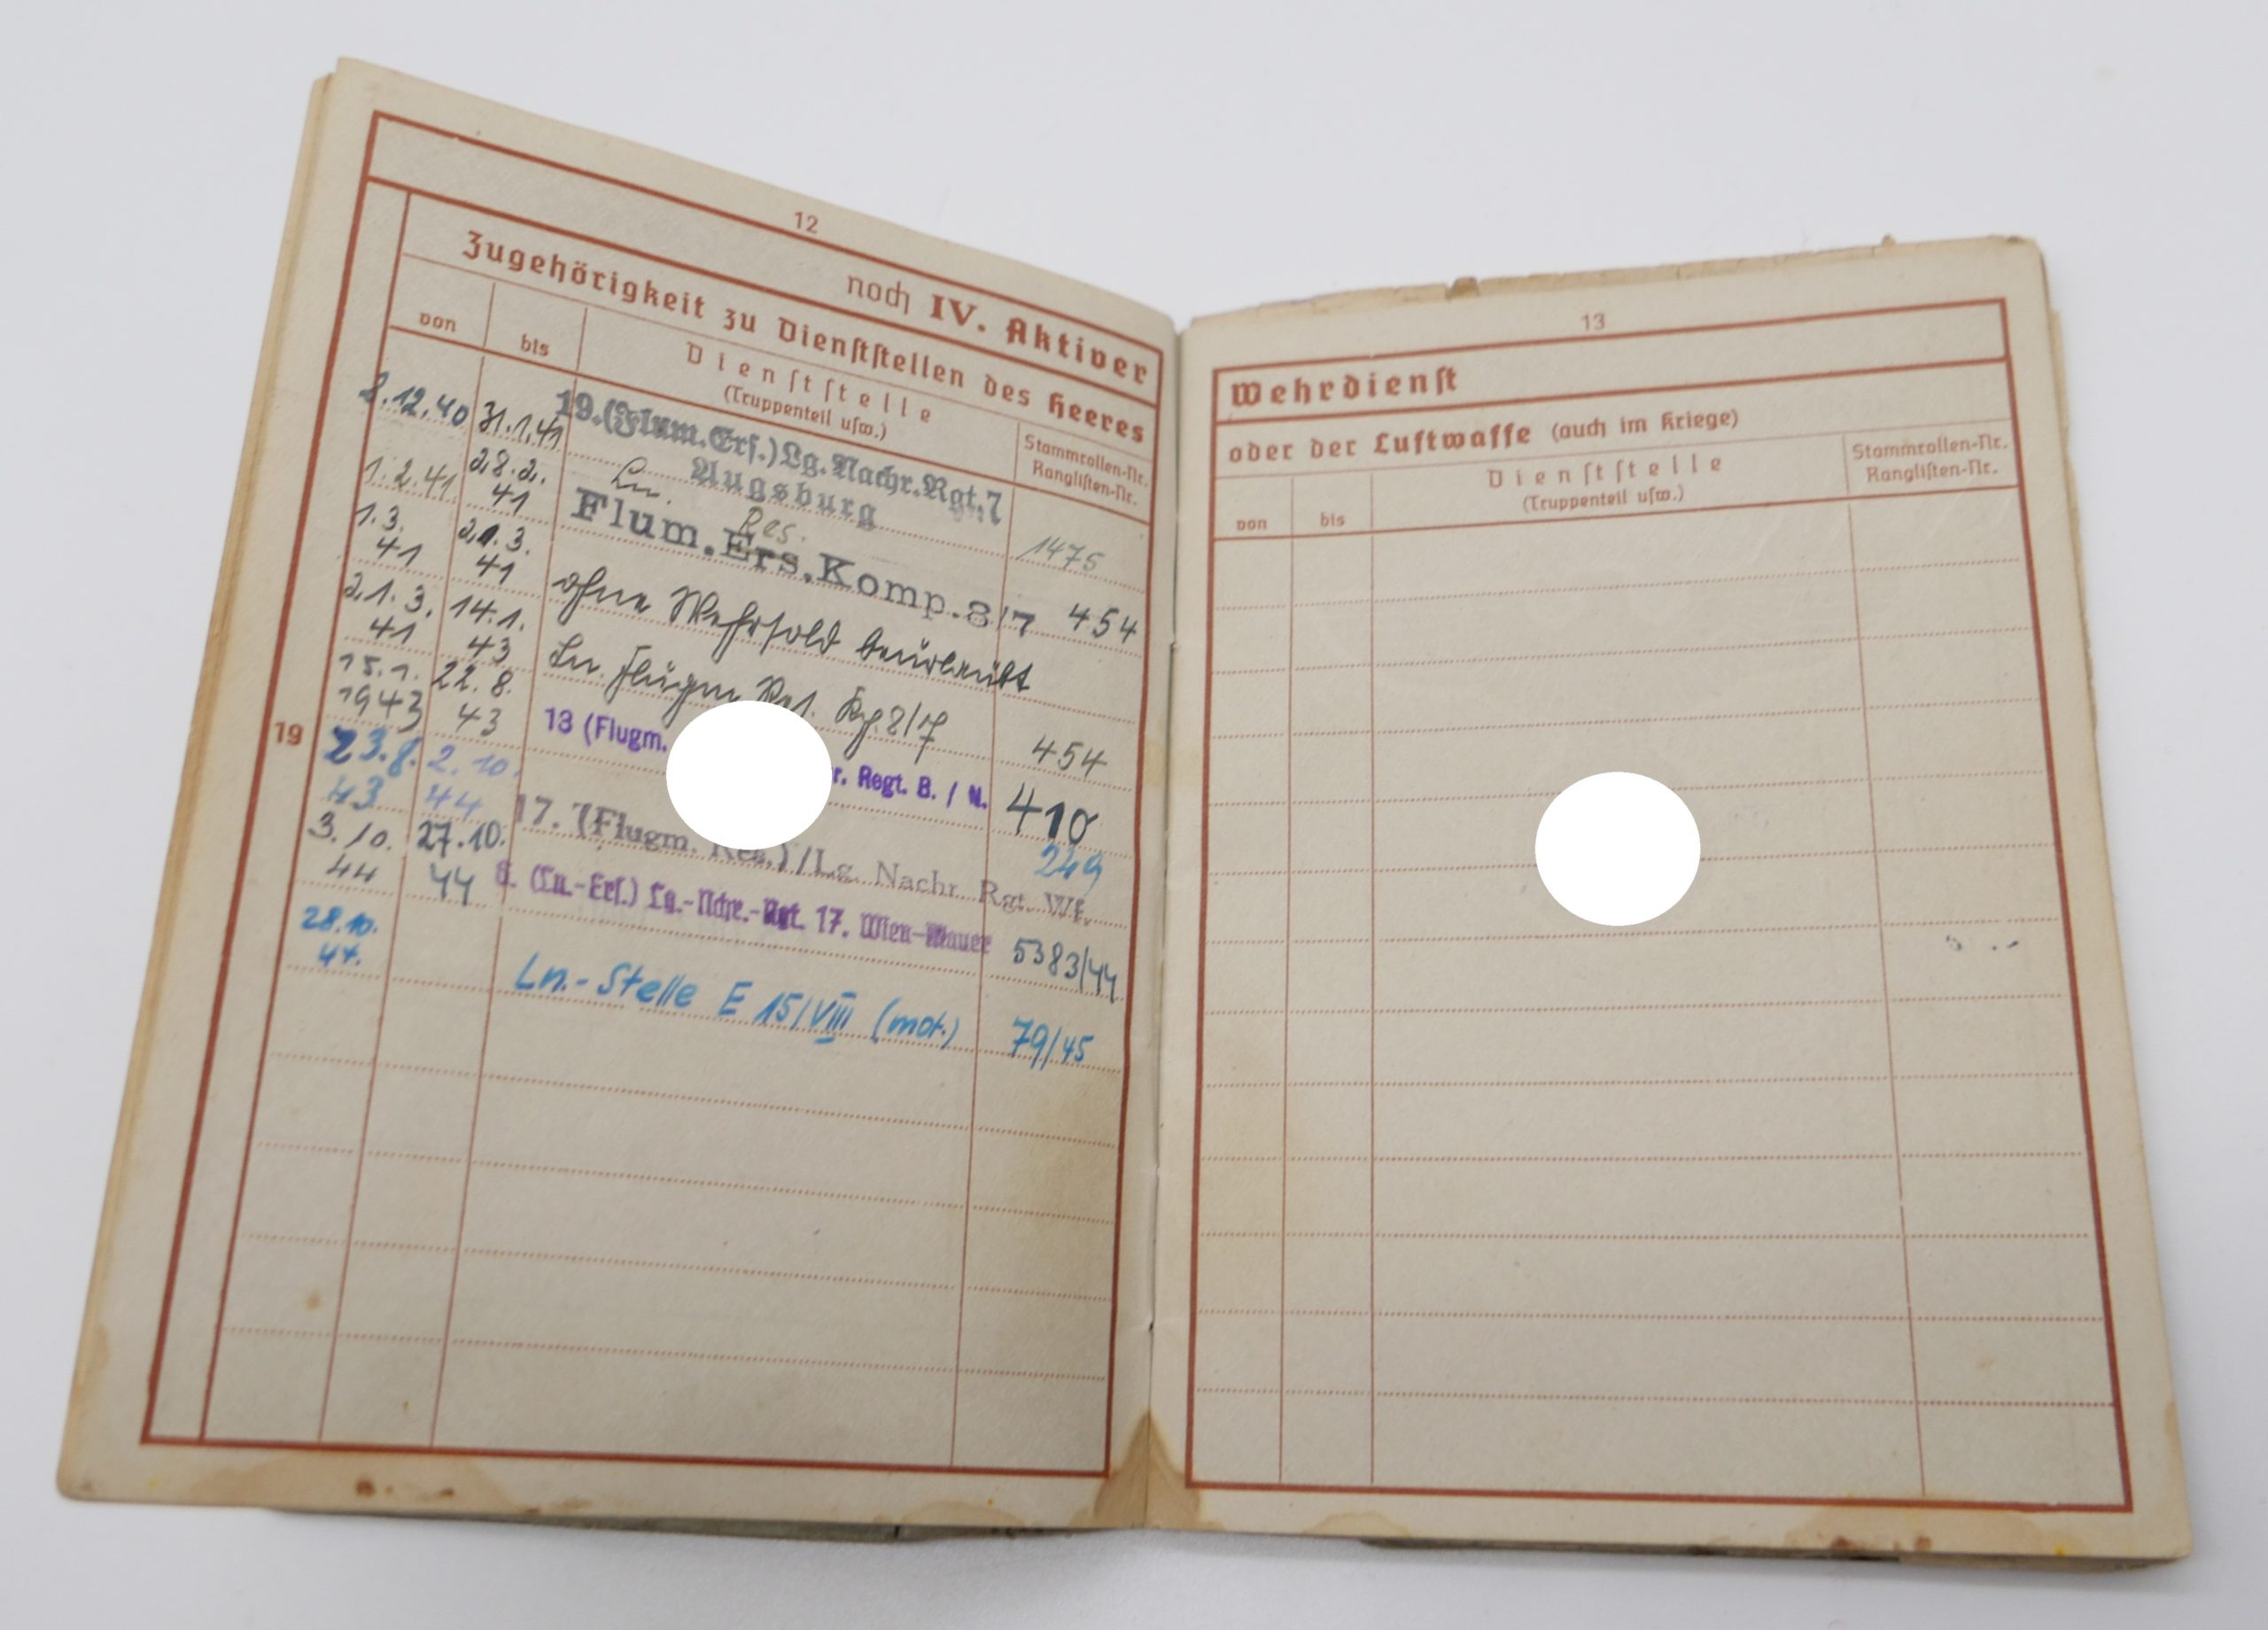 12
noch IV. Aktiver
Zugehörigkeit zu Dienststellen des Heeres
von bis Dienststelle (Truppenteil usw.) Stammrollen-Nr. Ranglisten-Nr.
8.12.40 31.1.41 19.(Flum.Ers.)Lg.Nachr.Rgt.7
Augsburg 1475
1.2.41 28.2. 41 Ln. Res.
Flum.Ers.Komp.8/7 454
1.3. 41 20.3. 41 ohne Wehrsold beurlaubt
21.3. 41 14.1. 43 Ln. Flugm Res. Kp. 8/7 454
15.1. 1943 22.8. 43 13 (Flugm. r. Regt. B. / N. 410
19
23.8. 43 2.10. 44 17. (Flugm. Res.)/Lg. Nachr. Rgt. Wf. 249
3.10. 44 27.10. 44 6. (Ln.-Ers.) Lg.-Nchr.-Rgt. 17. Wien-Mauer 5383/44
28.10. 44. Ln.-Stelle E 15/VIII (mot.) 79/45
13
Wehrdienst
oder der Luftwaffe (auch im Kriege)
von bis Dienststelle (Truppenteil usw.) Stammrollen-Nr. Ranglisten-Nr.